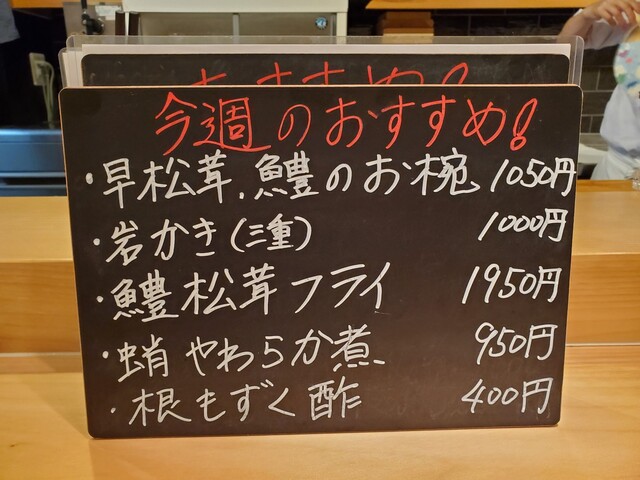 おすすめ!
今週のおすすめ!
・早松茸、鱧のお椀 1050円
・岩かき(三重) 1000円
・鱧松茸フライ 1950円
・蛸やわらか煮 950円
・根もずく酢 400円